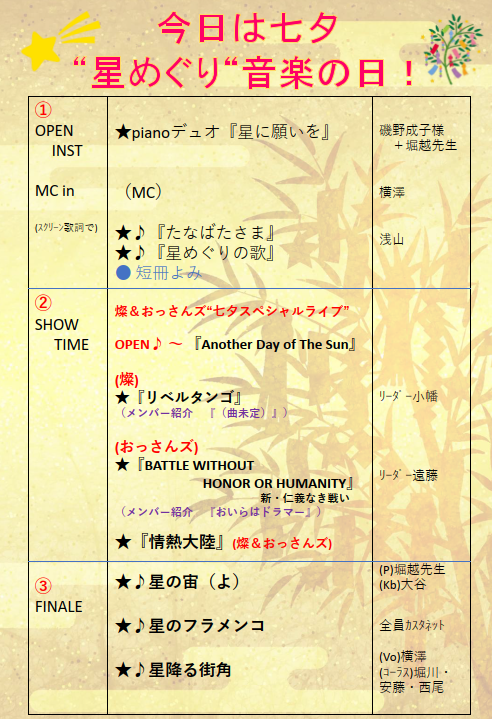 今日は七夕
“星めぐり“音楽の日！
①
OPEN
INST
★pianoデュオ『星に願いを』
磯野成子様
＋堀越先生
MC in
（MC）
横澤
(ｽｸﾘｰﾝ歌詞で)
★♪『たなばたさま』
★♪『星めぐりの歌』
浅山
● 短冊よみ
②
SHOW
TIME
燦＆おっさんズ“七夕スペシャルライブ”
OPEN♪ ～ 『Another Day of The Sun』
(燦)
★『リベルタンゴ』
ﾘｰﾀﾞｰ小幡
（メンバー紹介　『（曲未定）』）
(おっさんズ)
★『BATTLE WITHOUT
HONOR OR HUMANITY』
ﾘｰﾀﾞｰ遠藤
新・仁義なき戦い
（メンバー紹介　『おいらはドラマー』）
★『情熱大陸』(燦＆おっさんズ)
③
FINALE
★♪星の宙（よ）
(P)堀越先生
(Kb)大谷
★♪星のフラメンコ
全員ｶｽﾀﾈｯﾄ
★♪星降る街角
(Vo)横澤
(ｺｰﾗｽ)堀川・
安藤・西尾